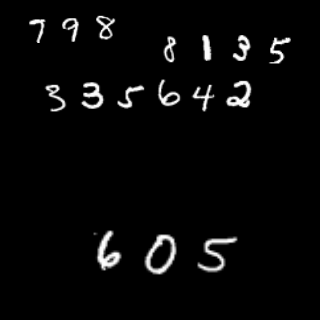 7 9 8
8 1 3 5
3 3 5 6 4 2
6 0 5